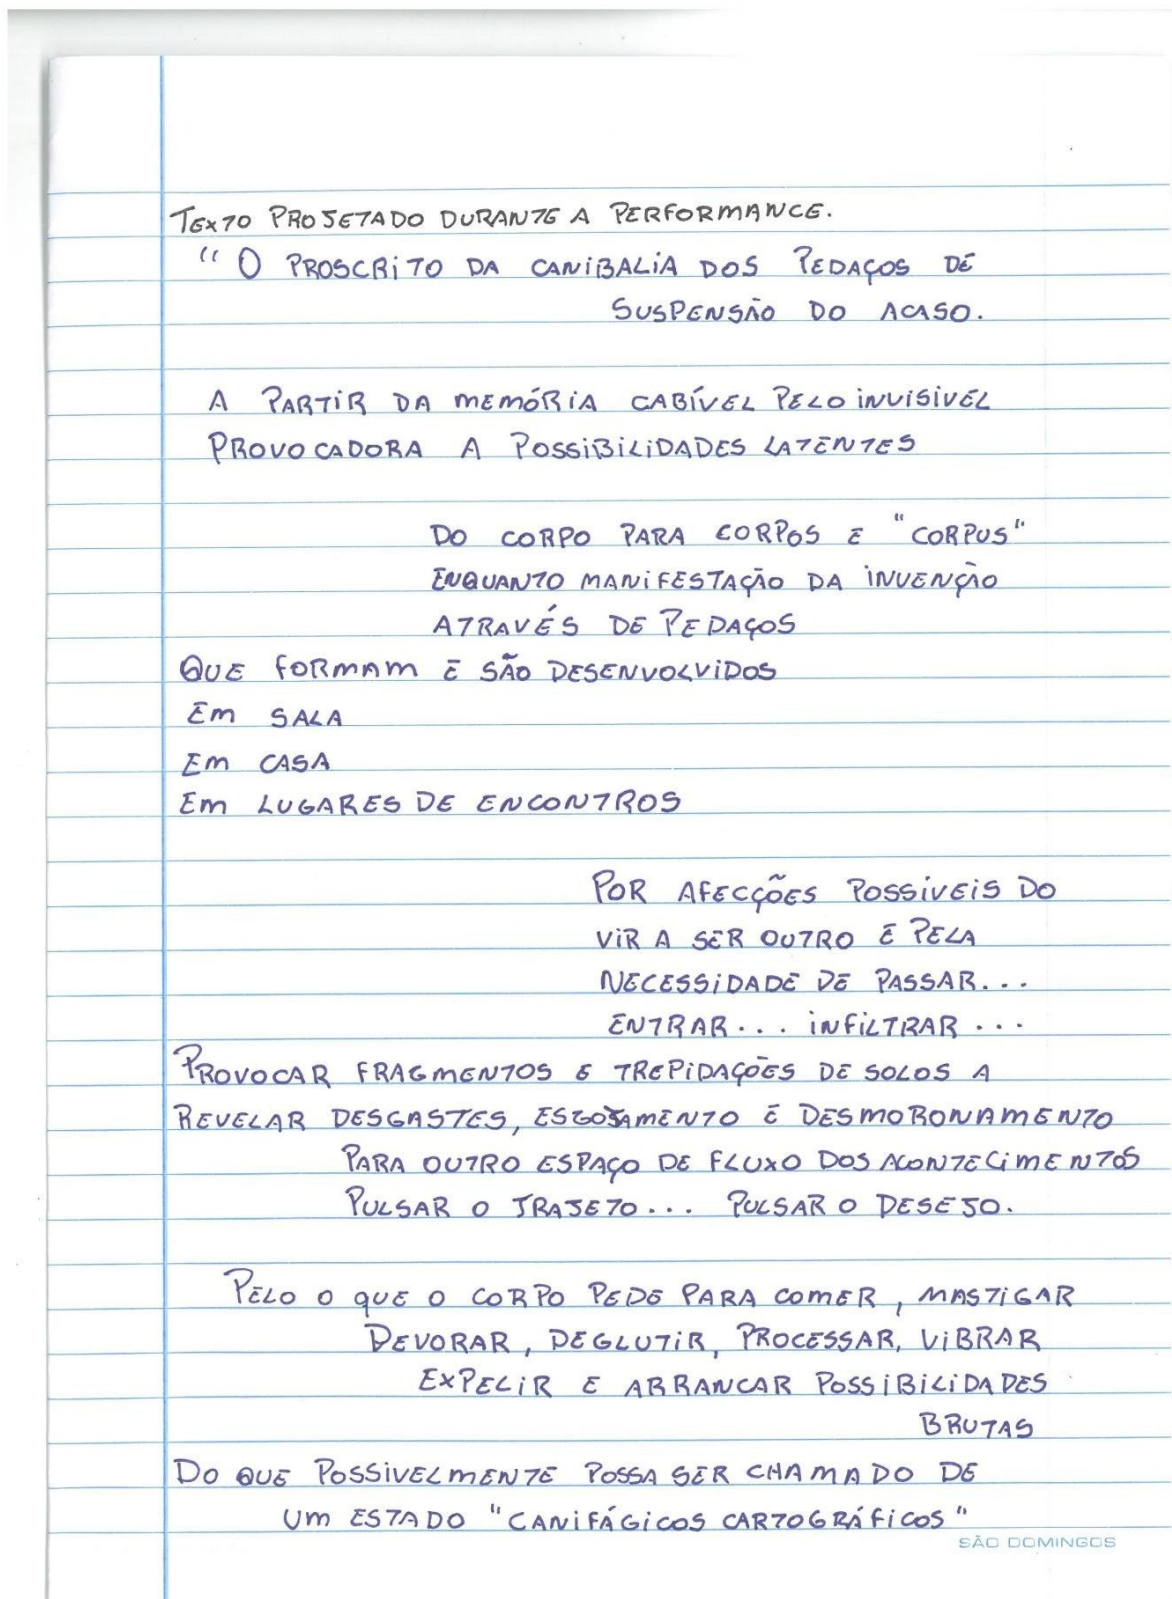 TEXTO PROJETADO DURANTE A PERFORMANCE.
"O PROSCRITO DA CANIBALIA DOS PEDAÇOS DE
SUSPENSÃO DO ACASO.
A PARTIR DA MEMÓRIA CABÍVEL PELO INVISIVEL
PROVOCADORA A POSSIBILIDADES LATENTES
DO CORPO PARA CORPOS E "CORPUS"
ENQUANTO MANIFESTAÇÃO DA INVENÇÃO
ATRAVÉS DE PEDAÇOS
QUE FORMAM E SÃO DESENVOLVIDOS
EM SALA
EM CASA
EM LUGARES DE ENCONTROS
POR AFECÇÕES POSSÍVEIS DO
VIR A SER OUTRO E PELA
NECESSIDADE DE PASSAR...
ENTRAR... INFILTRAR...
PROVOCAR FRAGMENTOS E TREPIDAÇÕES DE SOLOS A
REVELAR DESGASTES, ESGOTAMENTO E DESMORONAMENTO
PARA OUTRO ESPAÇO DE FLUXO DOS ACONTECIMENTOS
PULSAR O TRAJETO... PULSAR O DESEJO.
PELO O QUE O CORPO PEDE PARA COMER, MASTIGAR
DEVORAR, DEGLUTIR, PROCESSAR, VIBRAR
EXPELIR E ARRANCAR POSSIBILIDADES
BRUTAS
DO QUE POSSIVELMENTE POSSA SER CHAMADO DE
UM ESTADO "CANIFÁGICOS CARTOGRÁFICOS"
SÃO DOMINGOS